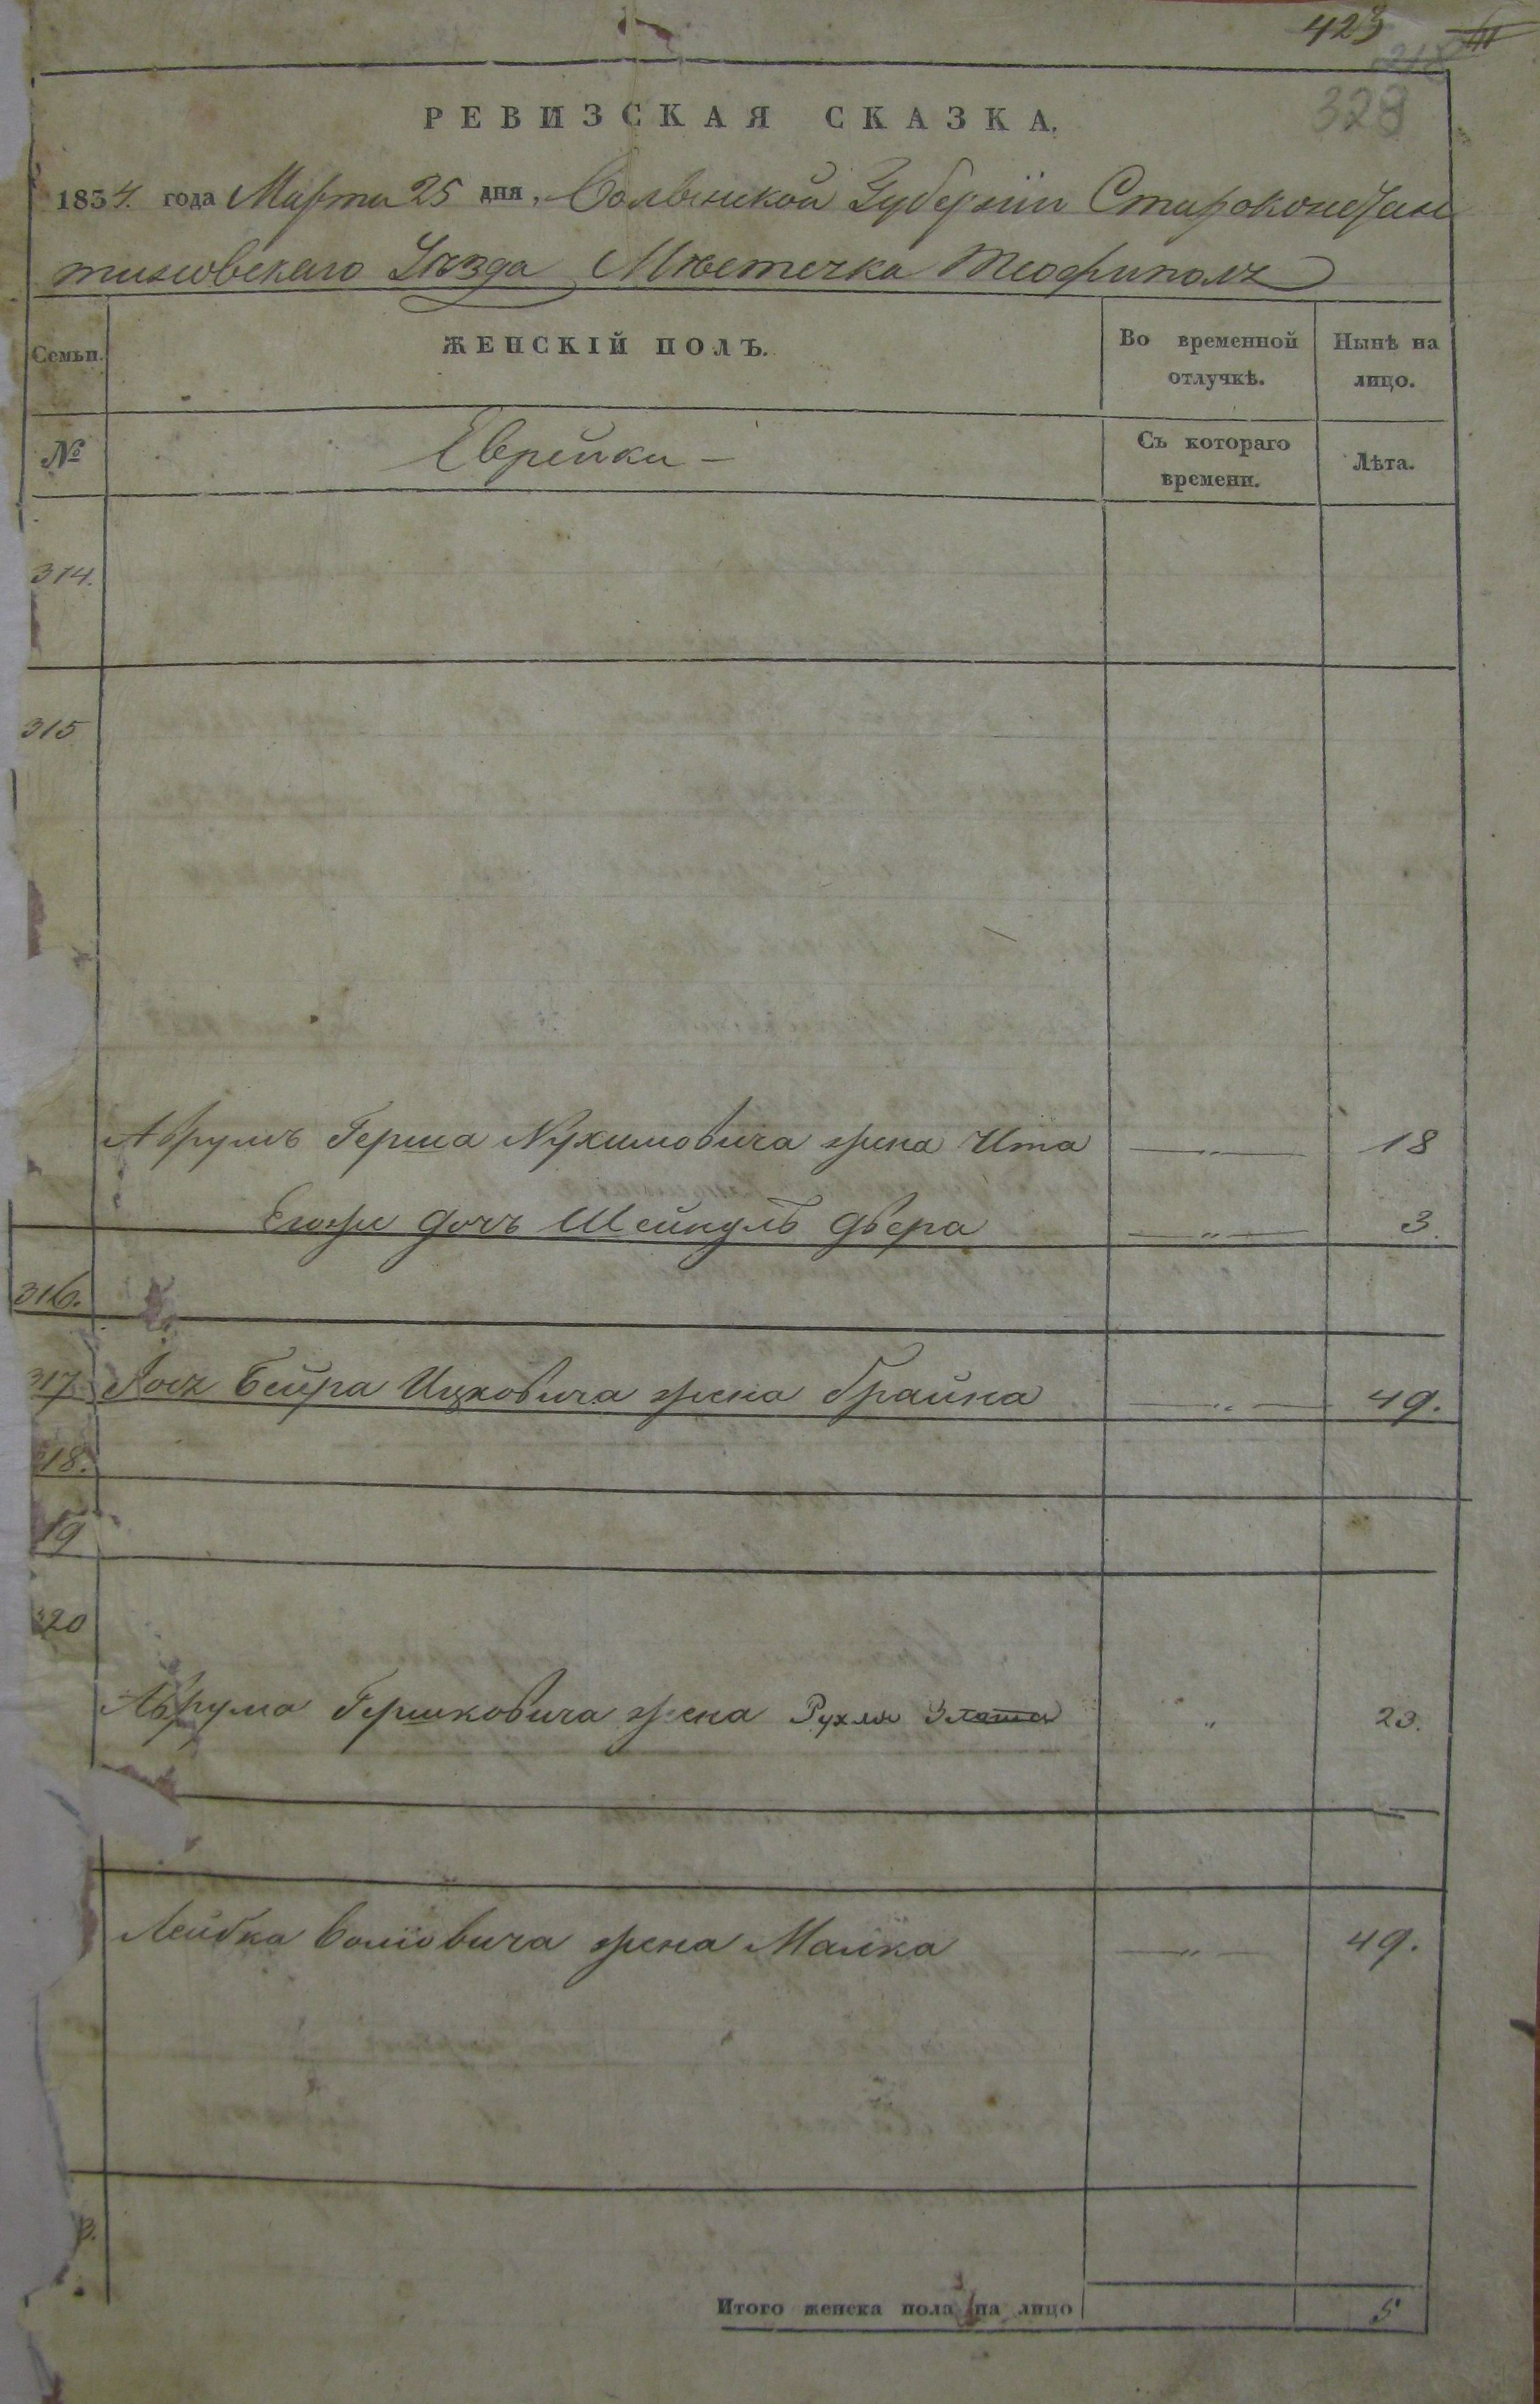 423
218
328
РЕВИЗСКАЯ СКАЗКА.
1834. года Марта 25 дня, Волынской Губернии Староконстан
тиновскаго Уѣзда Мѣстечка Теофиполь
Семьи. ЖЕНСКІЙ ПОЛЪ. Во временной отлучкѣ. Нынѣ на лицо.
№ Еврейки – Съ котораго времени. Лѣта.
314.
315
Аврумъ Герша Нухимовича жена Ита —„— 18
Егоже дочь Шейндль Двера —„— 3.
316.
317 Іось Бейра Ицковича жена Брайна —„— 49.
318.
19
320
Аврума Гершковича жена Рухля Злата „ 23.
Лейбка Волиовича жена Малка —„— 49.
3.
Итого женска пола на лицо 5